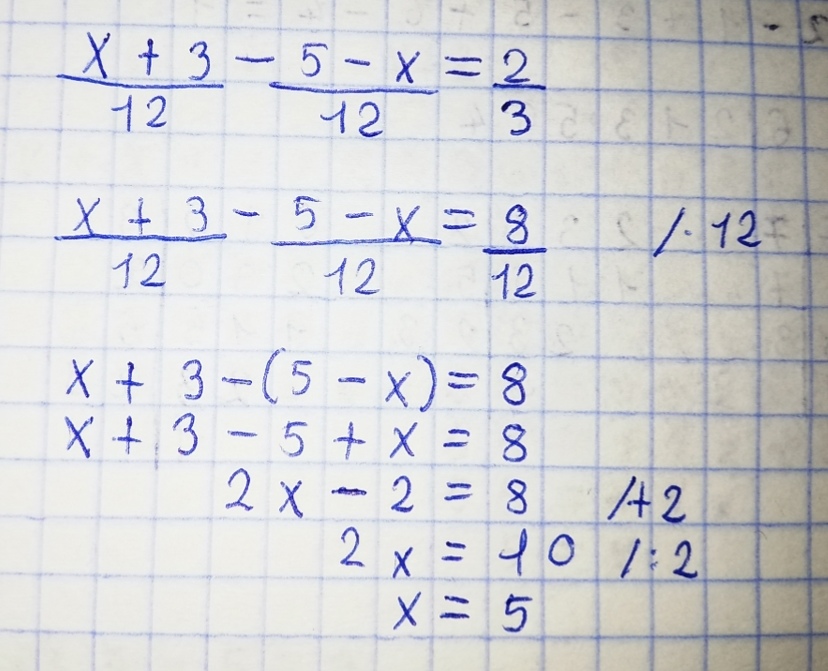 x + 3 − 5 − x = 2
12 12 3
x + 3 − 5 − x = 8 /· 12
12 12 12
x + 3 − (5 − x) = 8
x + 3 − 5 + x = 8
2x − 2 = 8 /+2
2x = 10 /:2
x = 5